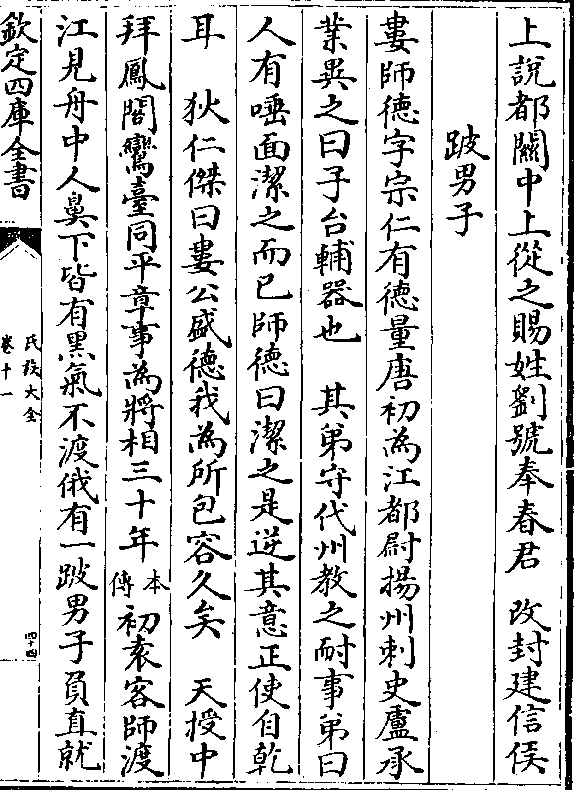 上說都關中上從之賜姓劉號奉春君　改封建信侯
跛男子
婁師德字宗仁有德量唐初為江都尉揚州刺史盧承
業異之曰子台輔器也　其弟守代州教之耐事弟曰
人有唾面潔之而已師德曰潔之是逆其意正使自乾
耳　狄仁傑曰婁公盛德我為所包容久矣　天授中
拜鳳閣鸞臺同平章事為將相三十年本傳初袁客師渡
江見舟中人鼻下皆有黑氣不渡俄有一跛男子負直就
欽定四庫全書
氏族大全
卷十一
四十四